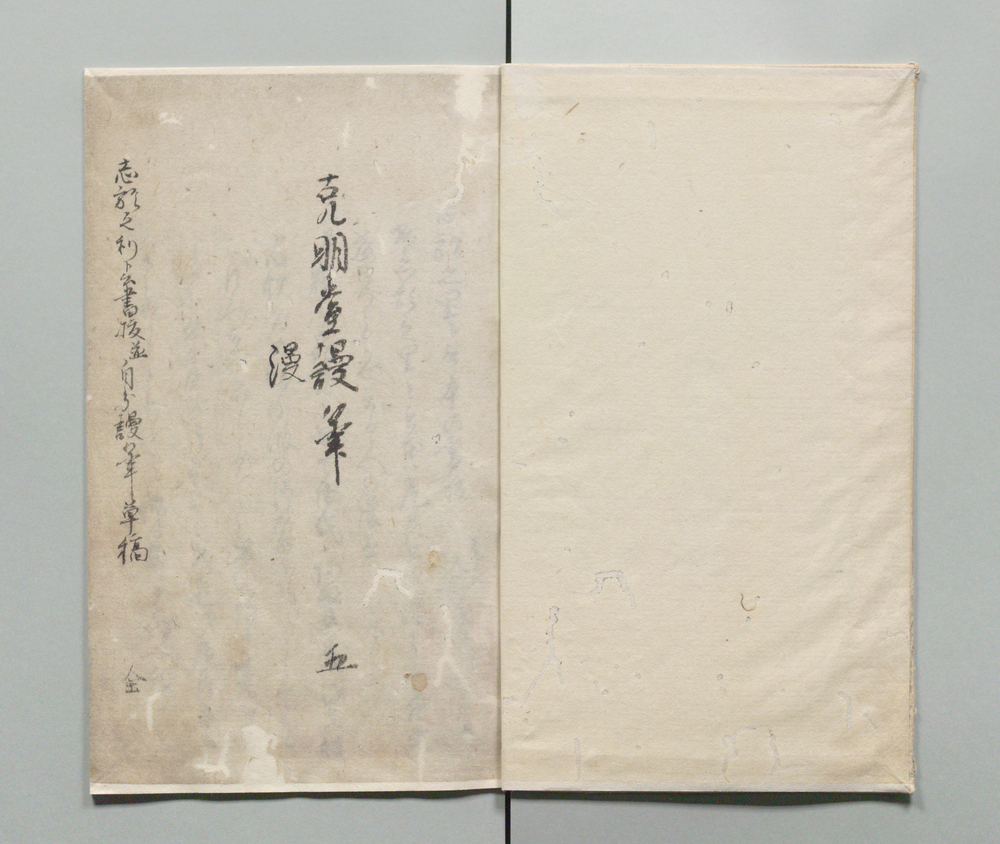 克明堂謾筆　五
漫
志之利ト云書抜並自分謾筆草稿　全